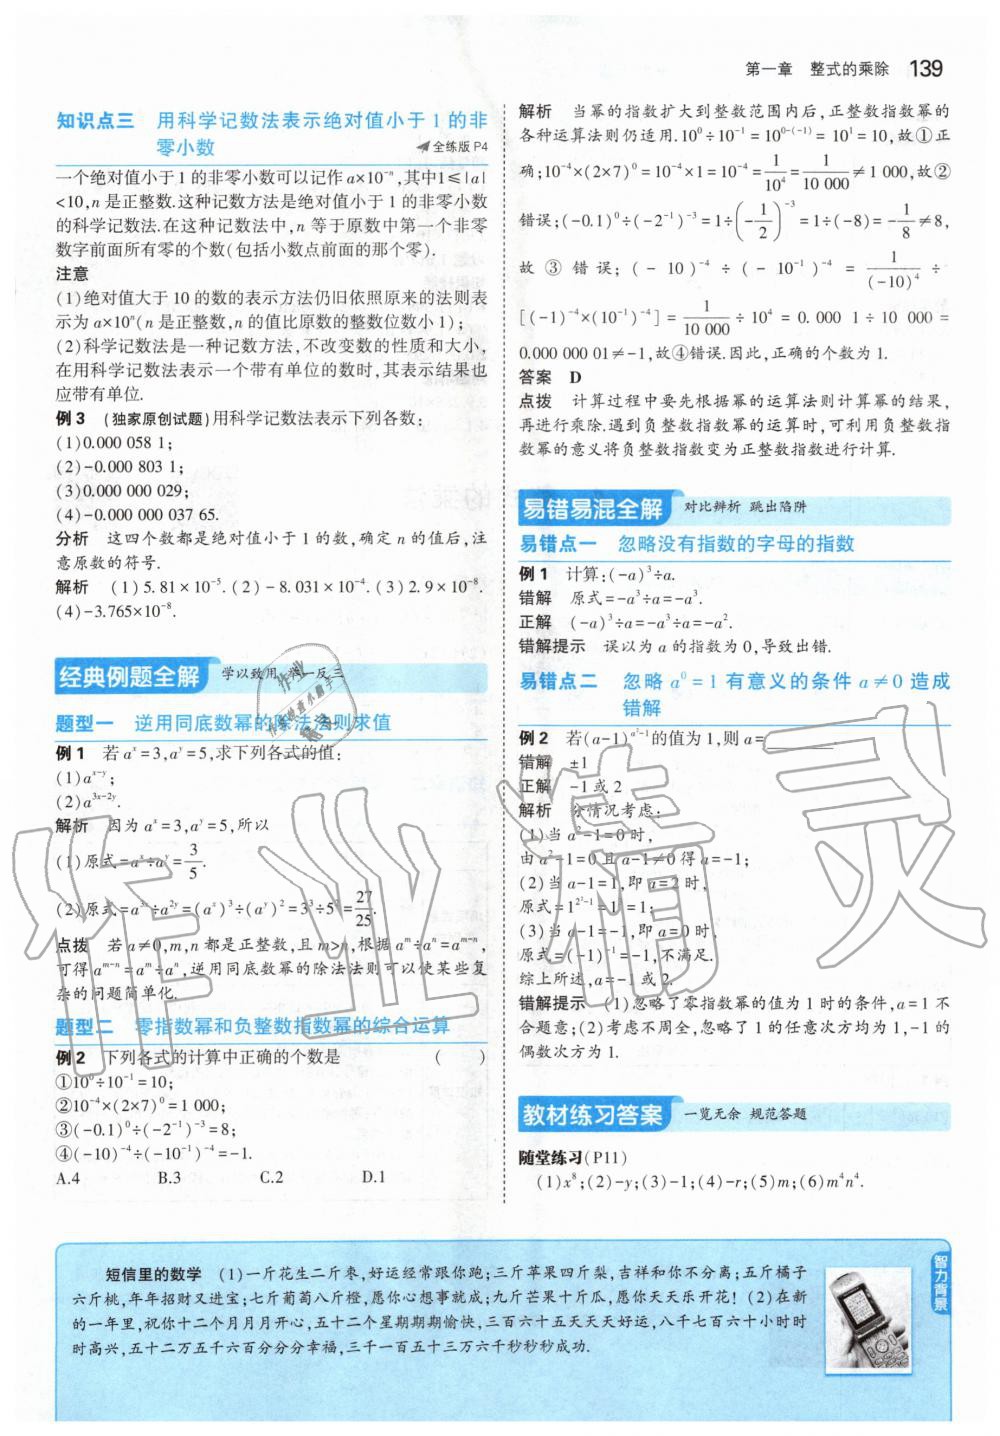 第一章 整式的乘除 139
知识点三 用科学记数法表示绝对值小于 1 的非
零小数 全练版 P4
一个绝对值小于1的非零小数可以记作 a×10⁻ⁿ,其中1≤|a|
<10,n 是正整数.这种记数方法是绝对值小于 1 的非零小数
的科学记数法.在这种记数方法中,n 等于原数中第一个非零
数字前面所有零的个数(包括小数点前面的那个零).
注意
(1)绝对值大于 10 的数的表示方法仍旧依照原来的法则表
示为 a×10ⁿ(n 是正整数,n 的值比原数的整数位数小 1);
(2)科学记数法是一种记数方法,不改变数的性质和大小,
在用科学记数法表示一个带有单位的数时,其表示结果也
应带有单位.
例 3 (独家原创试题)用科学记数法表示下列各数:
(1)0.000 058 1;
(2)-0.000 803 1;
(3)0.000 000 029;
(4)-0.000 000 037 65.
分析 这四个数都是绝对值小于 1 的数,确定 n 的值后,注
意原数的符号.
解析 (1)5.81×10⁻⁵.(2)-8.031×10⁻⁴.(3)2.9×10⁻⁸.
(4)-3.765×10⁻⁸.
经典例题全解 学以致用 举一反三
题型一 逆用同底数幂的除法法则求值
例 1 若 aˣ=3,aʸ=5,求下列各式的值:
(1)aˣ⁻ʸ;
(2)a³ˣ⁻²ʸ.
解析 因为 aˣ=3,aʸ=5,所以
(1)原式=aˣ÷aʸ=3/5.
(2)原式=a³ˣ÷a²ʸ=(aˣ)³÷(aʸ)²=3³÷5²=27/25.
点拨 若 a≠0,m,n 都是正整数,且 m>n,根据 aᵐ÷aⁿ=aᵐ⁻ⁿ,
可得 aᵐ⁻ⁿ=aᵐ÷aⁿ,逆用同底数幂的除法法则可以使某些复
杂的问题简单化.
题型二 零指数幂和负整数指数幂的综合运算
例 2 下列各式的计算中正确的个数是 ( )
①10⁰÷10⁻¹=10;
②10⁻⁴×(2×7)⁰=1 000;
③(-0.1)⁰÷(-2⁻¹)⁻³=8;
④(-10)⁻⁴÷(-10⁻¹)⁻⁴=-1.
A.4 B.3 C.2 D.1
解析 当幂的指数扩大到整数范围内后,正整数指数幂的
各种运算法则仍适用.10⁰÷10⁻¹=10⁰⁻⁽⁻¹⁾=10¹=10,故①正
确;10⁻⁴×(2×7)⁰=10⁻⁴×1=10⁻⁴=1/10⁴=1/10 000≠1 000,故②
错误;(-0.1)⁰÷(-2⁻¹)⁻³=1÷(-1/2)⁻³=1÷(-8)=-1/8≠8,
故③错误;(-10)⁻⁴÷(-10⁻¹)⁻⁴=1/(-10)⁴÷
[(-1)⁻⁴×(10⁻¹)⁻⁴]=1/10 000÷10⁴=0.000 1÷10 000=
0.000 000 01≠-1,故④错误.因此,正确的个数为 1.
答案 D
点拨 计算过程中要先根据幂的运算法则计算幂的结果,
再进行乘除.遇到负整数指数幂的运算时,可利用负整数指
数幂的意义将负整数指数变为正整数指数进行计算.
易错易混全解 对比辨析 跳出陷阱
易错点一 忽略没有指数的字母的指数
例 1 计算:(-a)³÷a.
错解 原式=-a³÷a=-a³.
正解 (-a)³÷a=-a³÷a=-a².
错解提示 误以为 a 的指数为 0,导致出错.
易错点二 忽略 a⁰=1 有意义的条件 a≠0 造成
错解
例 2 若(a-1)^(a²-1)的值为 1,则 a=________.
错解 ±1
正解 -1 或 2
解析 分情况考虑:
(1)当 a²-1=0 时,
由 a²-1=0 且 a-1≠0 得 a=-1;
(2)当 a-1=1,即 a=2 时,
原式=1^(2²-1)=1³=1;
(3)当 a-1=-1,即 a=0 时,
原式=(-1)⁻¹=-1,不满足.
综上所述,a=-1 或 2.
错解提示 (1)忽略了零指数幂的值为 1 时的条件,a=1 不
合题意;(2)考虑不周全,忽略了 1 的任意次方均为 1,-1 的
偶数次方为 1.
教材练习答案 一览无余 规范答题
随堂练习(P11)
(1)x⁸;(2)-y;(3)-1;(4)-r;(5)m;(6)m⁴n⁴.
短信里的数学 (1)一斤花生二斤枣,好运经常跟你跑;三斤苹果四斤梨,吉祥和你不分离;五斤橘子
六斤桃,年年招财又进宝;七斤葡萄八斤橙,愿你心想事就成;九斤芒果十斤瓜,愿你天天乐开花! (2)在新
的一年里,祝你十二个月月月开心,五十二个星期期期愉快,三百六十五天天天好运,八千七百六十小时时
时高兴,五十二万五千六百分分分幸福,三千一百五十三万六千秒秒秒成功.
智力背景
作业精灵